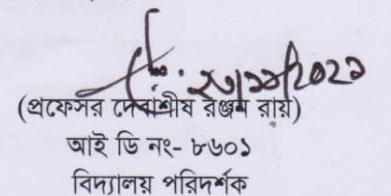 ২৮/১১/২০২১
(প্রফেসর দেবাশীষ রঞ্জন রায়)
আই ডি নং- ৮৬০১
বিদ্যালয় পরিদর্শক